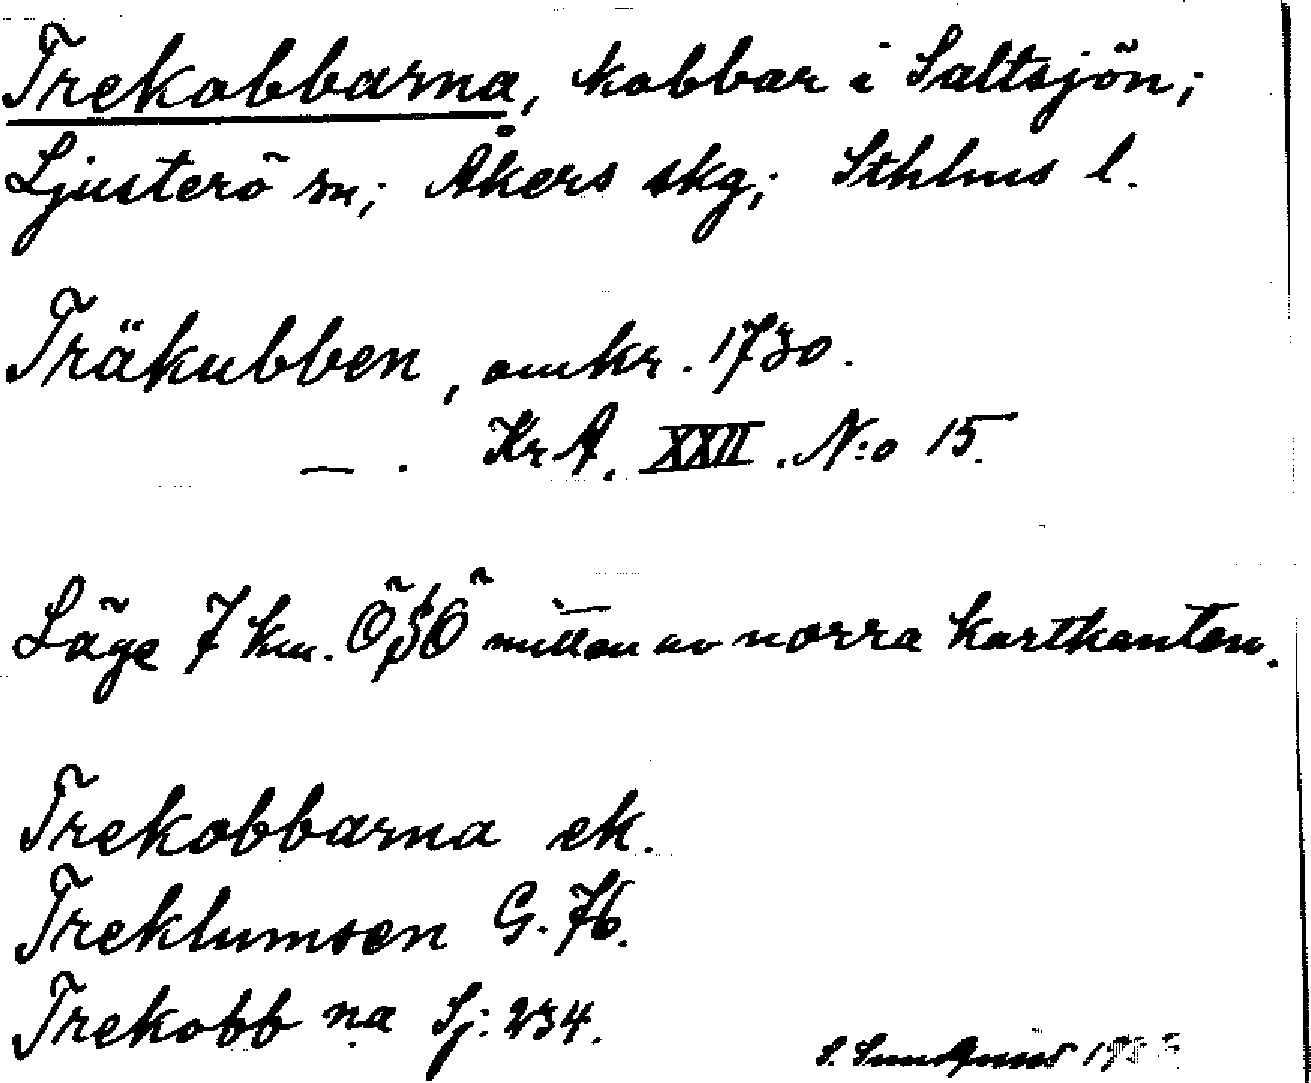 Trekobbarna, kobbar i Saltsjön;
Ljusterö sn; Åkers skg; Sthlms l.
Träkubben, omkr. 1730.
— . KrA. XXII. N:o 15.
Läge 7 km. ÖSÖ mitten av norra kartkanten.
Trekobbarna ek.
Treklumsen G. 76.
Trekobb na Sj: 234.
S.